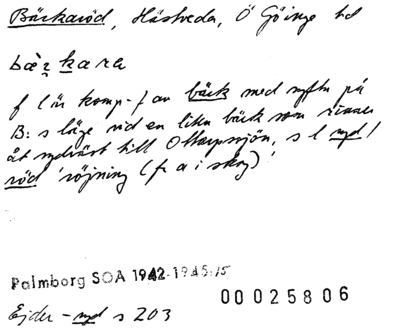 Bäckaröd, Hästveda, Ö Göinge hd
bæ̀ʐkara
f l är komp-f av bäck med syftn på
B: s läge vid en liten bäck som rinner
åt sydväst till Ottarpssjön, s l ryd /
röd 'röjning (fr a i skog)'
Palmborg SOA 1942-1945:15
00025806
Ejder - ryd s 203